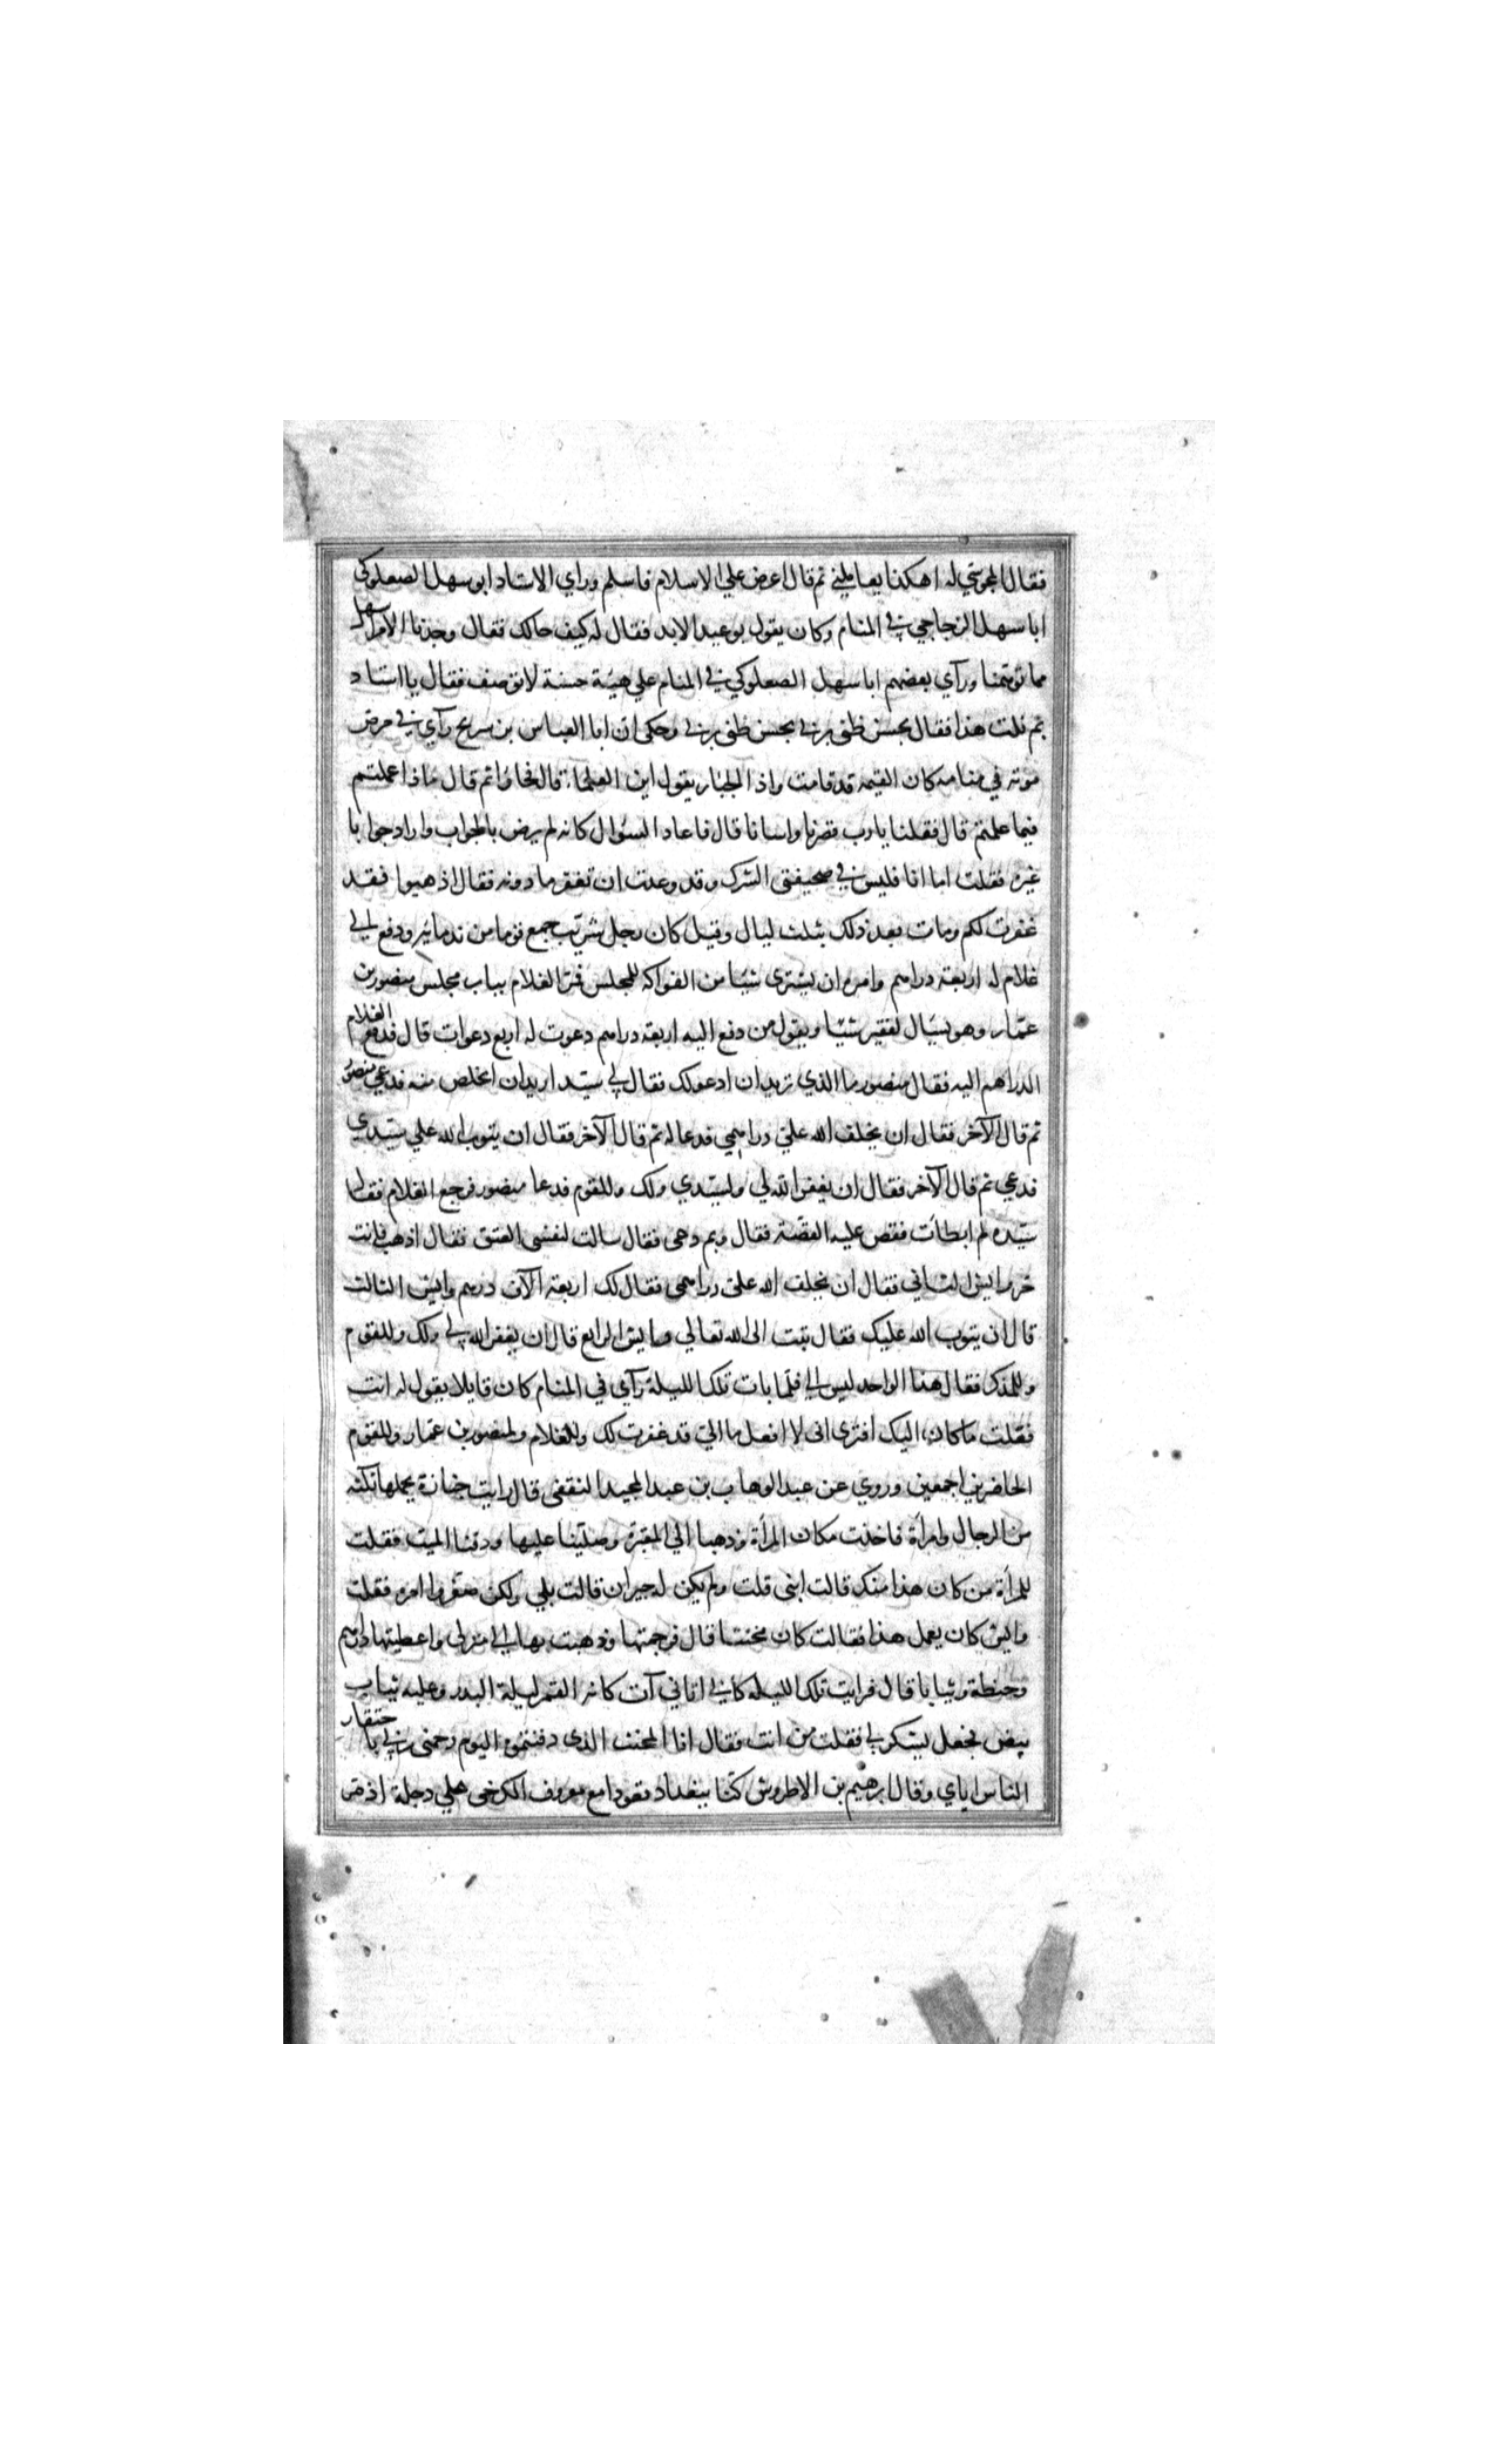 فقال المجوسي له اهكذا يعاملني ثم قال اعرض علي الاسلام فاسلم وراي الاستاد ابو سهل الصعلوكي
ابا سهل الزجاجي في المنام وكان يقول بوعيد الابد فقال له كيف حالك فقال وجدنا الامر اسهل
مما توهمنا ورآي بعضهم ابا سهل الصعلوكي في المنام علي هيئة حسنة لا توصف فقال يا استاد
بم نلت هذا فقال بحسن ظني بربي بحسن ظني بربي وحكي ان ابا العباس بن سريج رآي في مرض
موته في منامه كان القيمة قد قامت واذا الجبار يقول اين العلماء قال فجاؤا ثم قال ماذا عملتم
فيما علمتم قال فقلنا يا رب قصرنا واسانا قال فاعاد السؤال كانه لم يرض بالجواب واراد جوابا
غيره فقلت اما انا فليس في صحيفتي الشرك وقد وعدت ان تغفر ما دونه فقال اذهبوا فقد
غفرت لكم ومات بعد ذلك بثلث ليال وقيل كان رجل شريب جمع قوما من ندمائه ودفع الي
غلام له اربعة دراهم وامره ان يشتري شيئا من الفواكه للمجلس فمر الغلام بباب مجلس منصور بن
عمار وهو يسال لفقير شيئا ويقول من دفع اليه اربعة دراهم دعوت له اربع دعوات قال فدفع الغلام
الدراهم اليه فقال منصور ما الذي تريد ان ادعو لك فقال لي سيد اريد ان اتخلص منه فدعي منصور
ثم قال الآخر فقال ان يخلف الله علي دراهمي فدعا له ثم قال الآخر فقال ان يتوب الله علي سيدي
فدعي ثم قال الآخر فقال ان يغفر الله لي ولسيدي ولك وللقوم فدعا منصور فرجع الغلام فقال
سيده لم ابطأت فقص عليه القصة فقال وبم دعي فقال سالت لنفسي العتق فقال اذهب فانت
حر وايش الثاني فقال ان يخلف الله علي دراهمي فقال لك اربعة الآف درهم وايش الثالث
قال ان يتوب الله عليك فقال تبت الى الله تعالي وايش الرابع قال ان يغفر الله لي ولك وللقوم
وللمذكر فقال هذا الواحد ليس الي فلما بات تلك الليلة رآي في المنام كان قايلا يقول له انت
فعلت ما كان اليك افتري اني لا افعل ما الي قد غفرت لك وللغلام ولمنصور بن عمار وللقوم
الحاضرين اجمعين وروي عن عبد الوهاب بن عبد المجيد الثقفي قال رايت جنازة يحملها ثلثة
من الرجال وامرأة فاخذت مكان المرأة وذهبنا الي المقبرة وصلينا عليها ودفنا الميت فقلت
للمرأة من كان هذا منك قالت ابني قلت ولم يكن له جيران قالت بلي ولكن صغروا امره فقلت
وايش كان يعمل هذا فقالت كان مخنثا قال فرحمتها وذهبت بها الي منزلي واعطيتها دراهم
وحنطة وثيابا قال فرايت تلك الليلة كاني اتاني آت كانه القمر ليلة البدر وعليه ثياب
بيض فجعل يشكر لي فقلت من انت فقال انا المخنث الذي دفنتموه اليوم رحمني ربي باحتقار
الناس اياي وقال ابرهيم بن الاطروش كنا ببغداد قعودا مع معروف الكرخي علي دجلة اذ مر